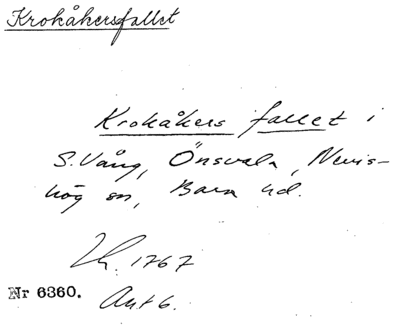 Krokåkersfallet
Krokåkers fallet i
S. Vång, Önsvala, Nevis-
hög sn, Bara hd.
1767
Nr 6360.
Akt 6.